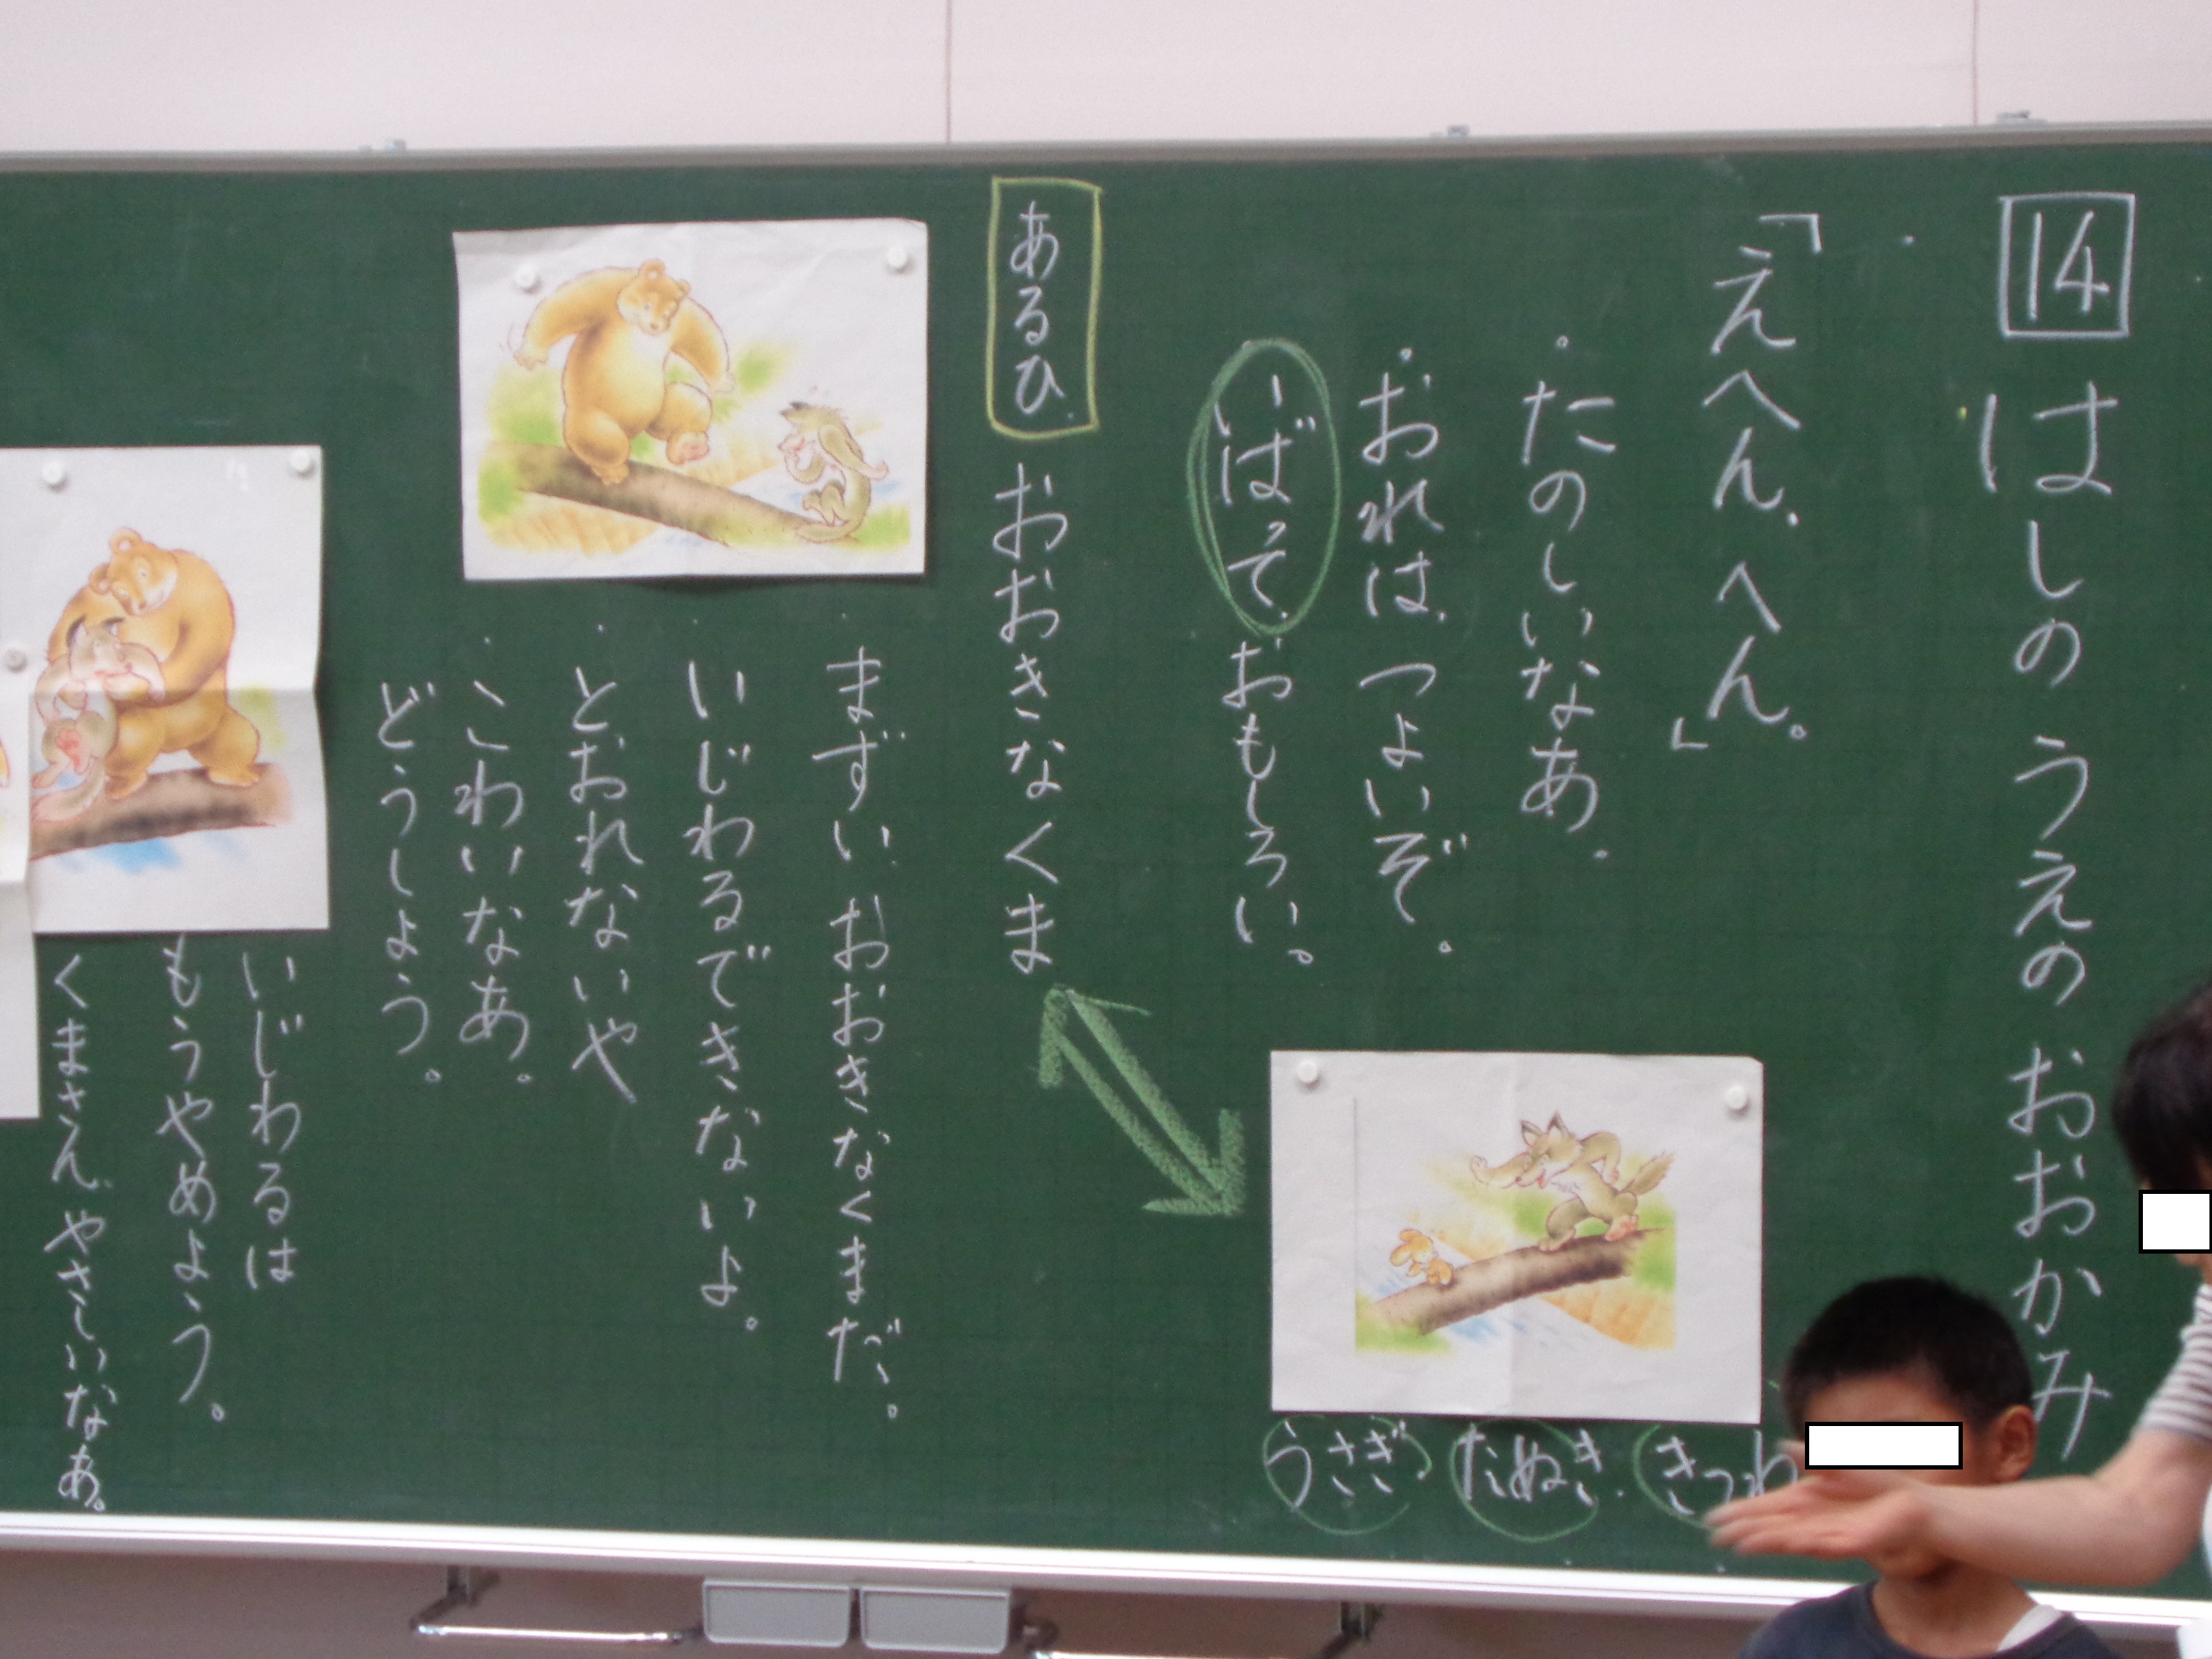 14 はしのうえのおおかみ
「えへん、へん。」
・たのしいなあ。
・おれは、つよいぞ。
いばって、おもしろい。
うさぎ
たぬき
きつね
あるひ おおきなくま
まずい、おおきなくまだ。
いじわるできないよ。
・とおれないや
・こわいなあ。
どうしよう。
いじわるは
もうやめよう。
くまさん、やさしいなあ。